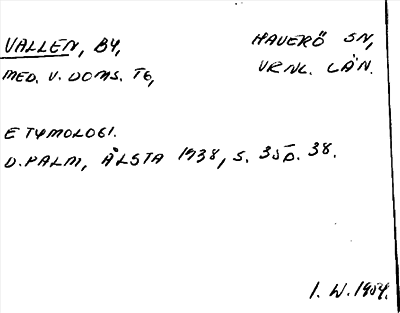 VALLEN, BY, HAVERÖ SN,
MED. V. DOMS. TG, VRNL. LÄN.
ETYMOLOGI.
D. PALM, ÄLSTA 1938, S. 35 O. 38.
I. W. 1954.